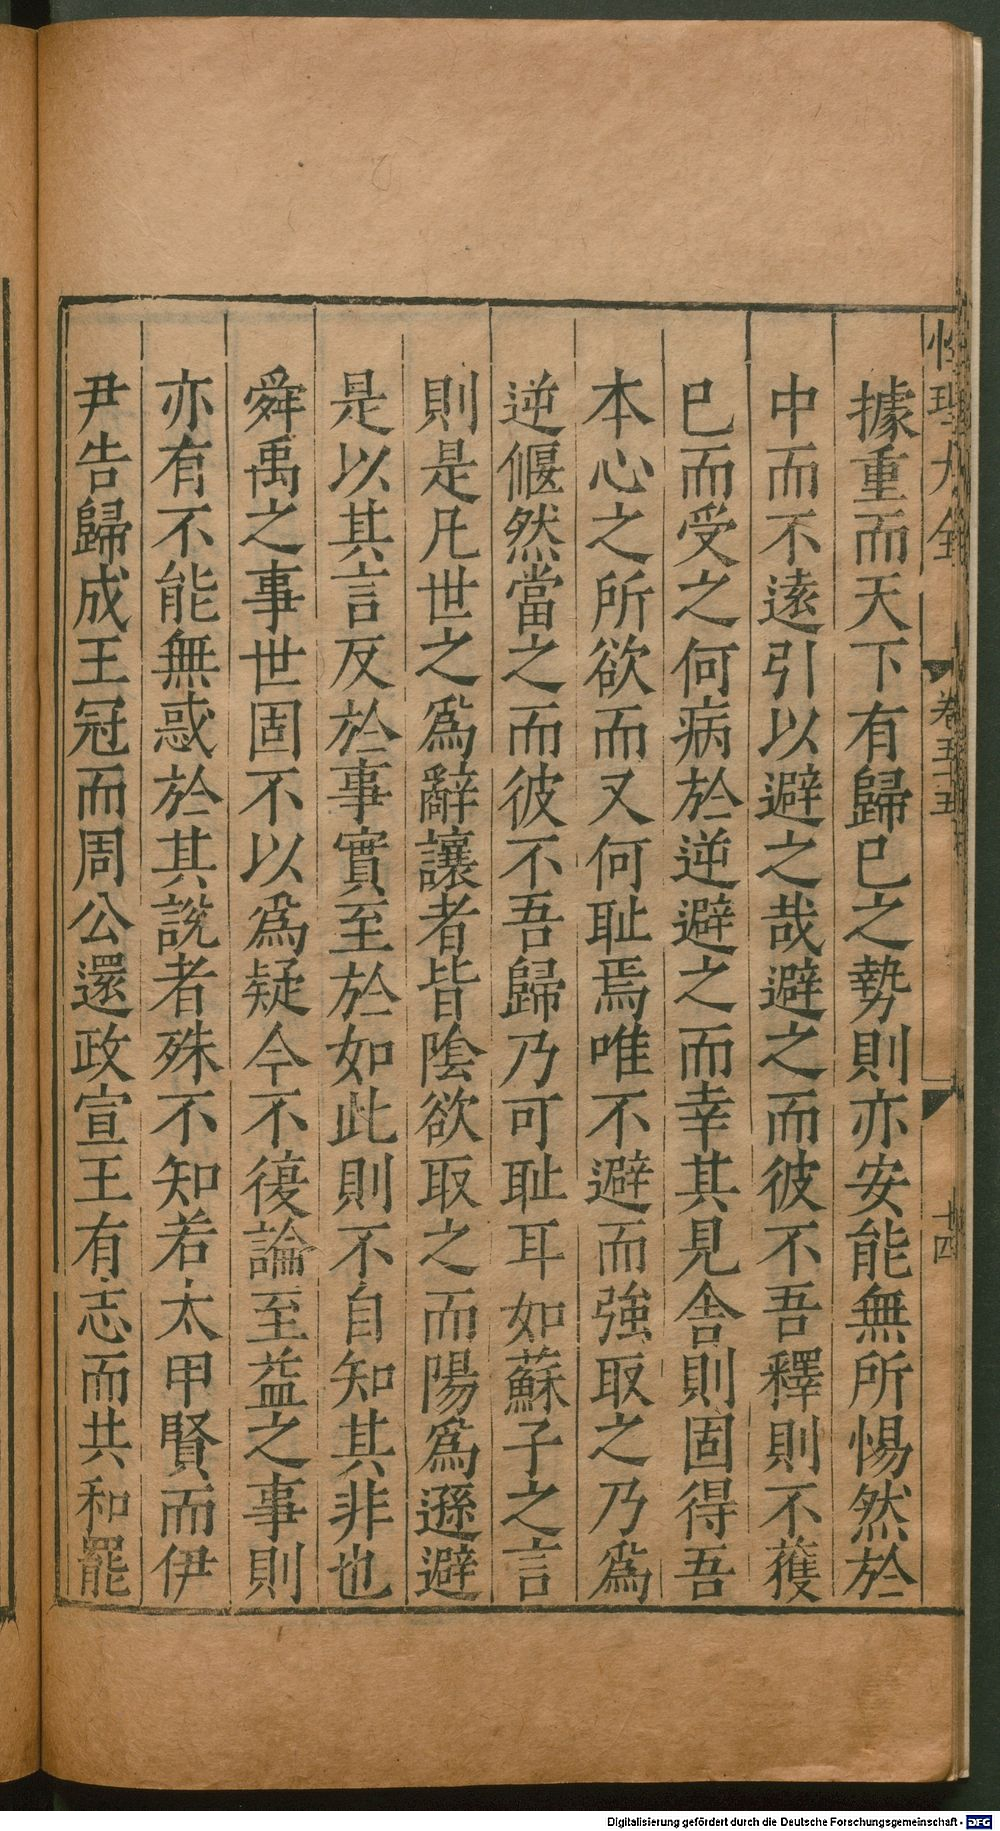 性理大全 卷五十五 十四
據重而天下有歸已之勢則亦安能無所惕然於
中而不遠引以避之哉避之而彼不吾釋則不獲
已而受之何病於逆避之而幸其見舍則固得吾
本心之所欲而又何耻焉唯不避而強取之乃爲
逆偃然當之而彼不吾歸乃可耻耳如蘇子之言
則是凡世之爲辭讓者皆陰欲取之而陽爲遜避
是以其言反於事實至於如此則不自知其非也
舜禹之事世固不以爲疑今不復論至益之事則
亦有不能無惑於其説者殊不知若太甲賢而伊
尹告歸成王冠而周公還政宣王有志而共和罷
Digitalisierung gefördert durch die Deutsche Forschungsgemeinschaft - DFG